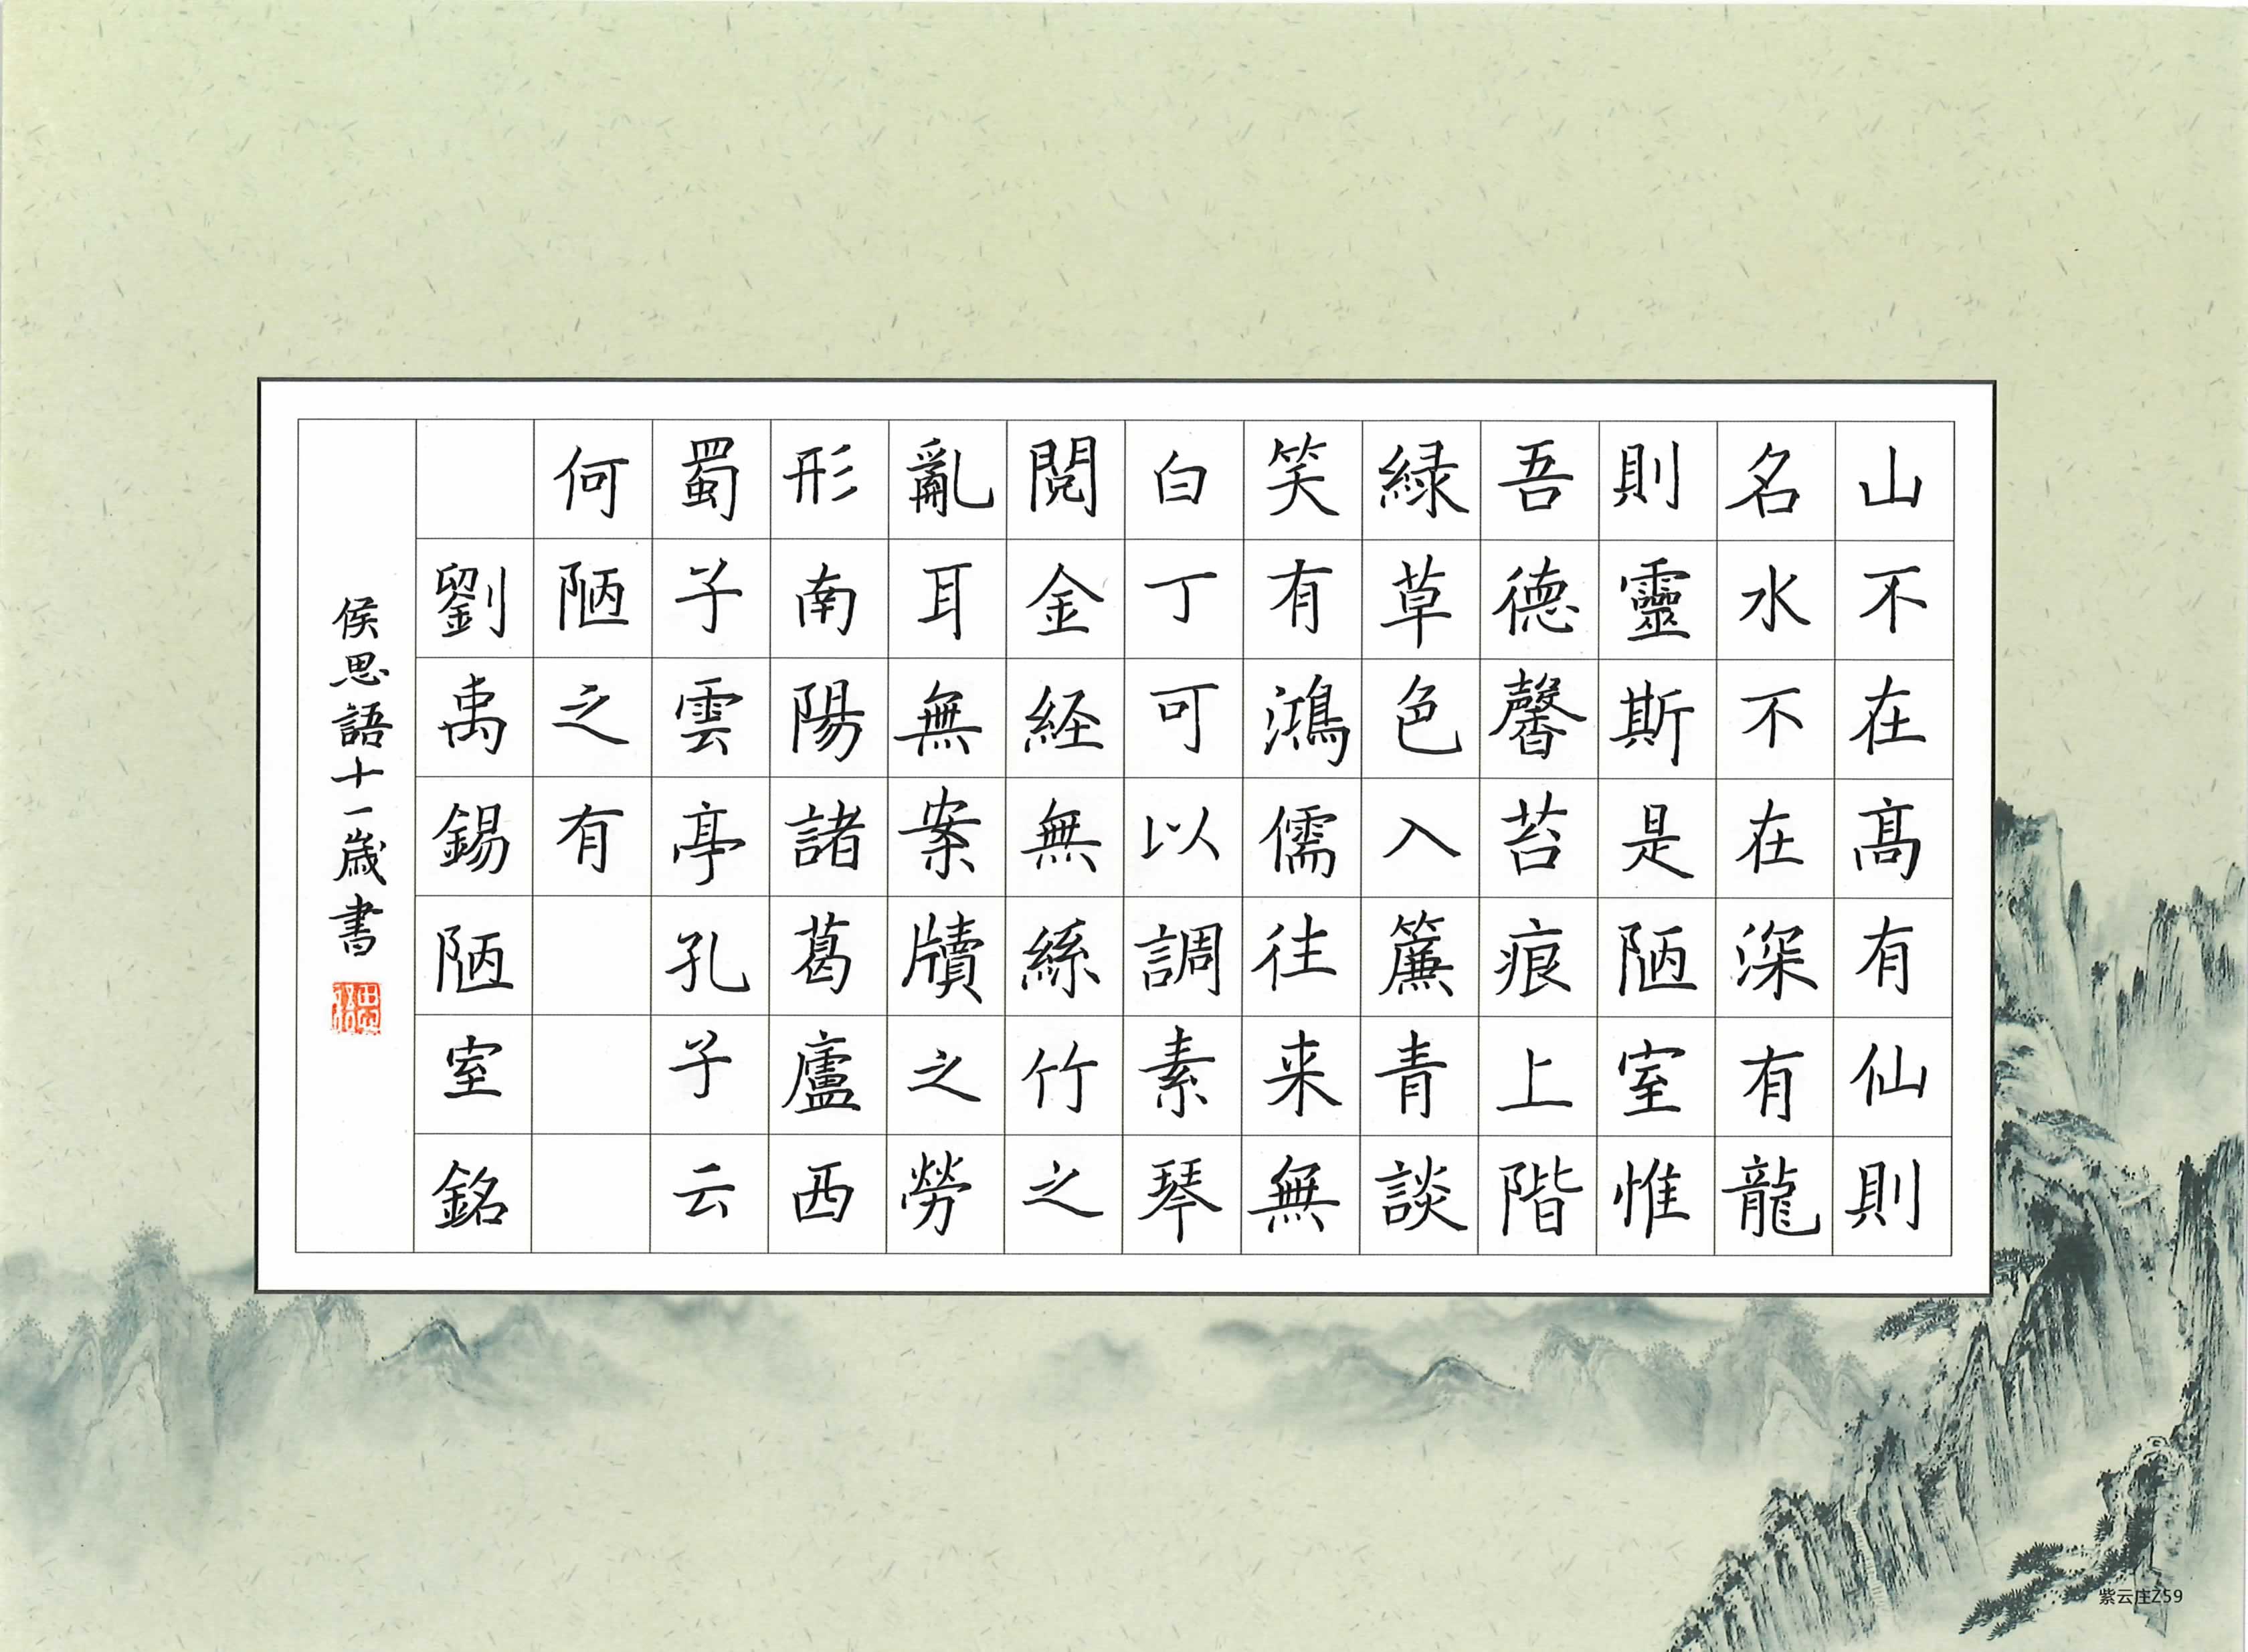 山不在髙有仙則
名水不在深有龍
則靈斯是陋室惟
吾德馨苔痕上階
緑草色入簾青談
笑有鴻儒往来無
白丁可以調素琴
閱金経無絲竹之
亂耳無案牘之勞
形南陽諸葛廬西
蜀子雲亭孔子云
何陋之有
劉禹錫陋室銘
侯思語十一歲書
紫云庄Z59